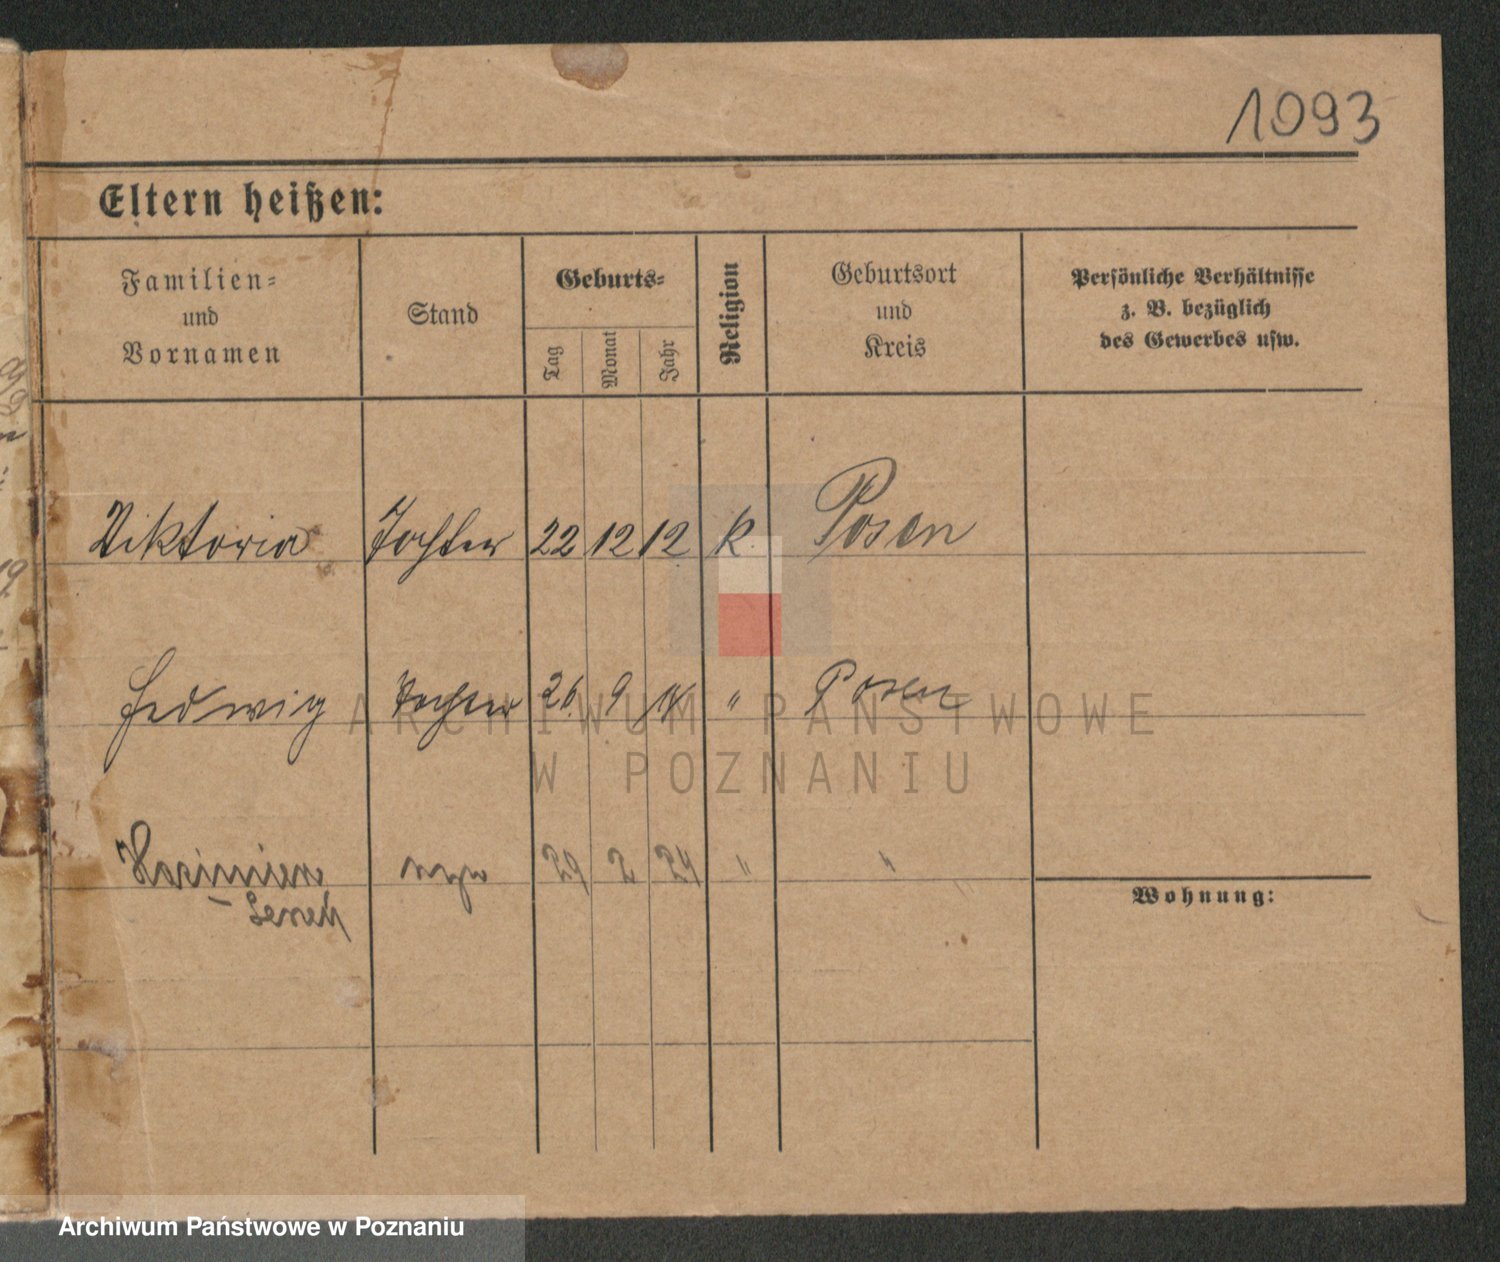 1093
Eltern heißen:
Familien-
und
Vornamen
Stand
Geburts-
Tag
Monat
Jahr
Religion
Geburtsort
und
Kreis
Persönliche Verhältnisse
z. B. bezüglich
des Gewerbes usw.
Viktoria Tochter 22 12 12 k. Posen
Hedwig Tochter 26. 9 14 " Posen
29 2 24 " "
Wohnung:
ARCHIWUM PAŃSTWOWE
W POZNANIU
Archiwum Państwowe w Poznaniu